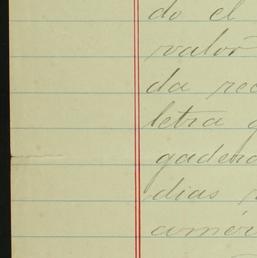 do el
valor
da rec
letra g
gadera
dias
amér